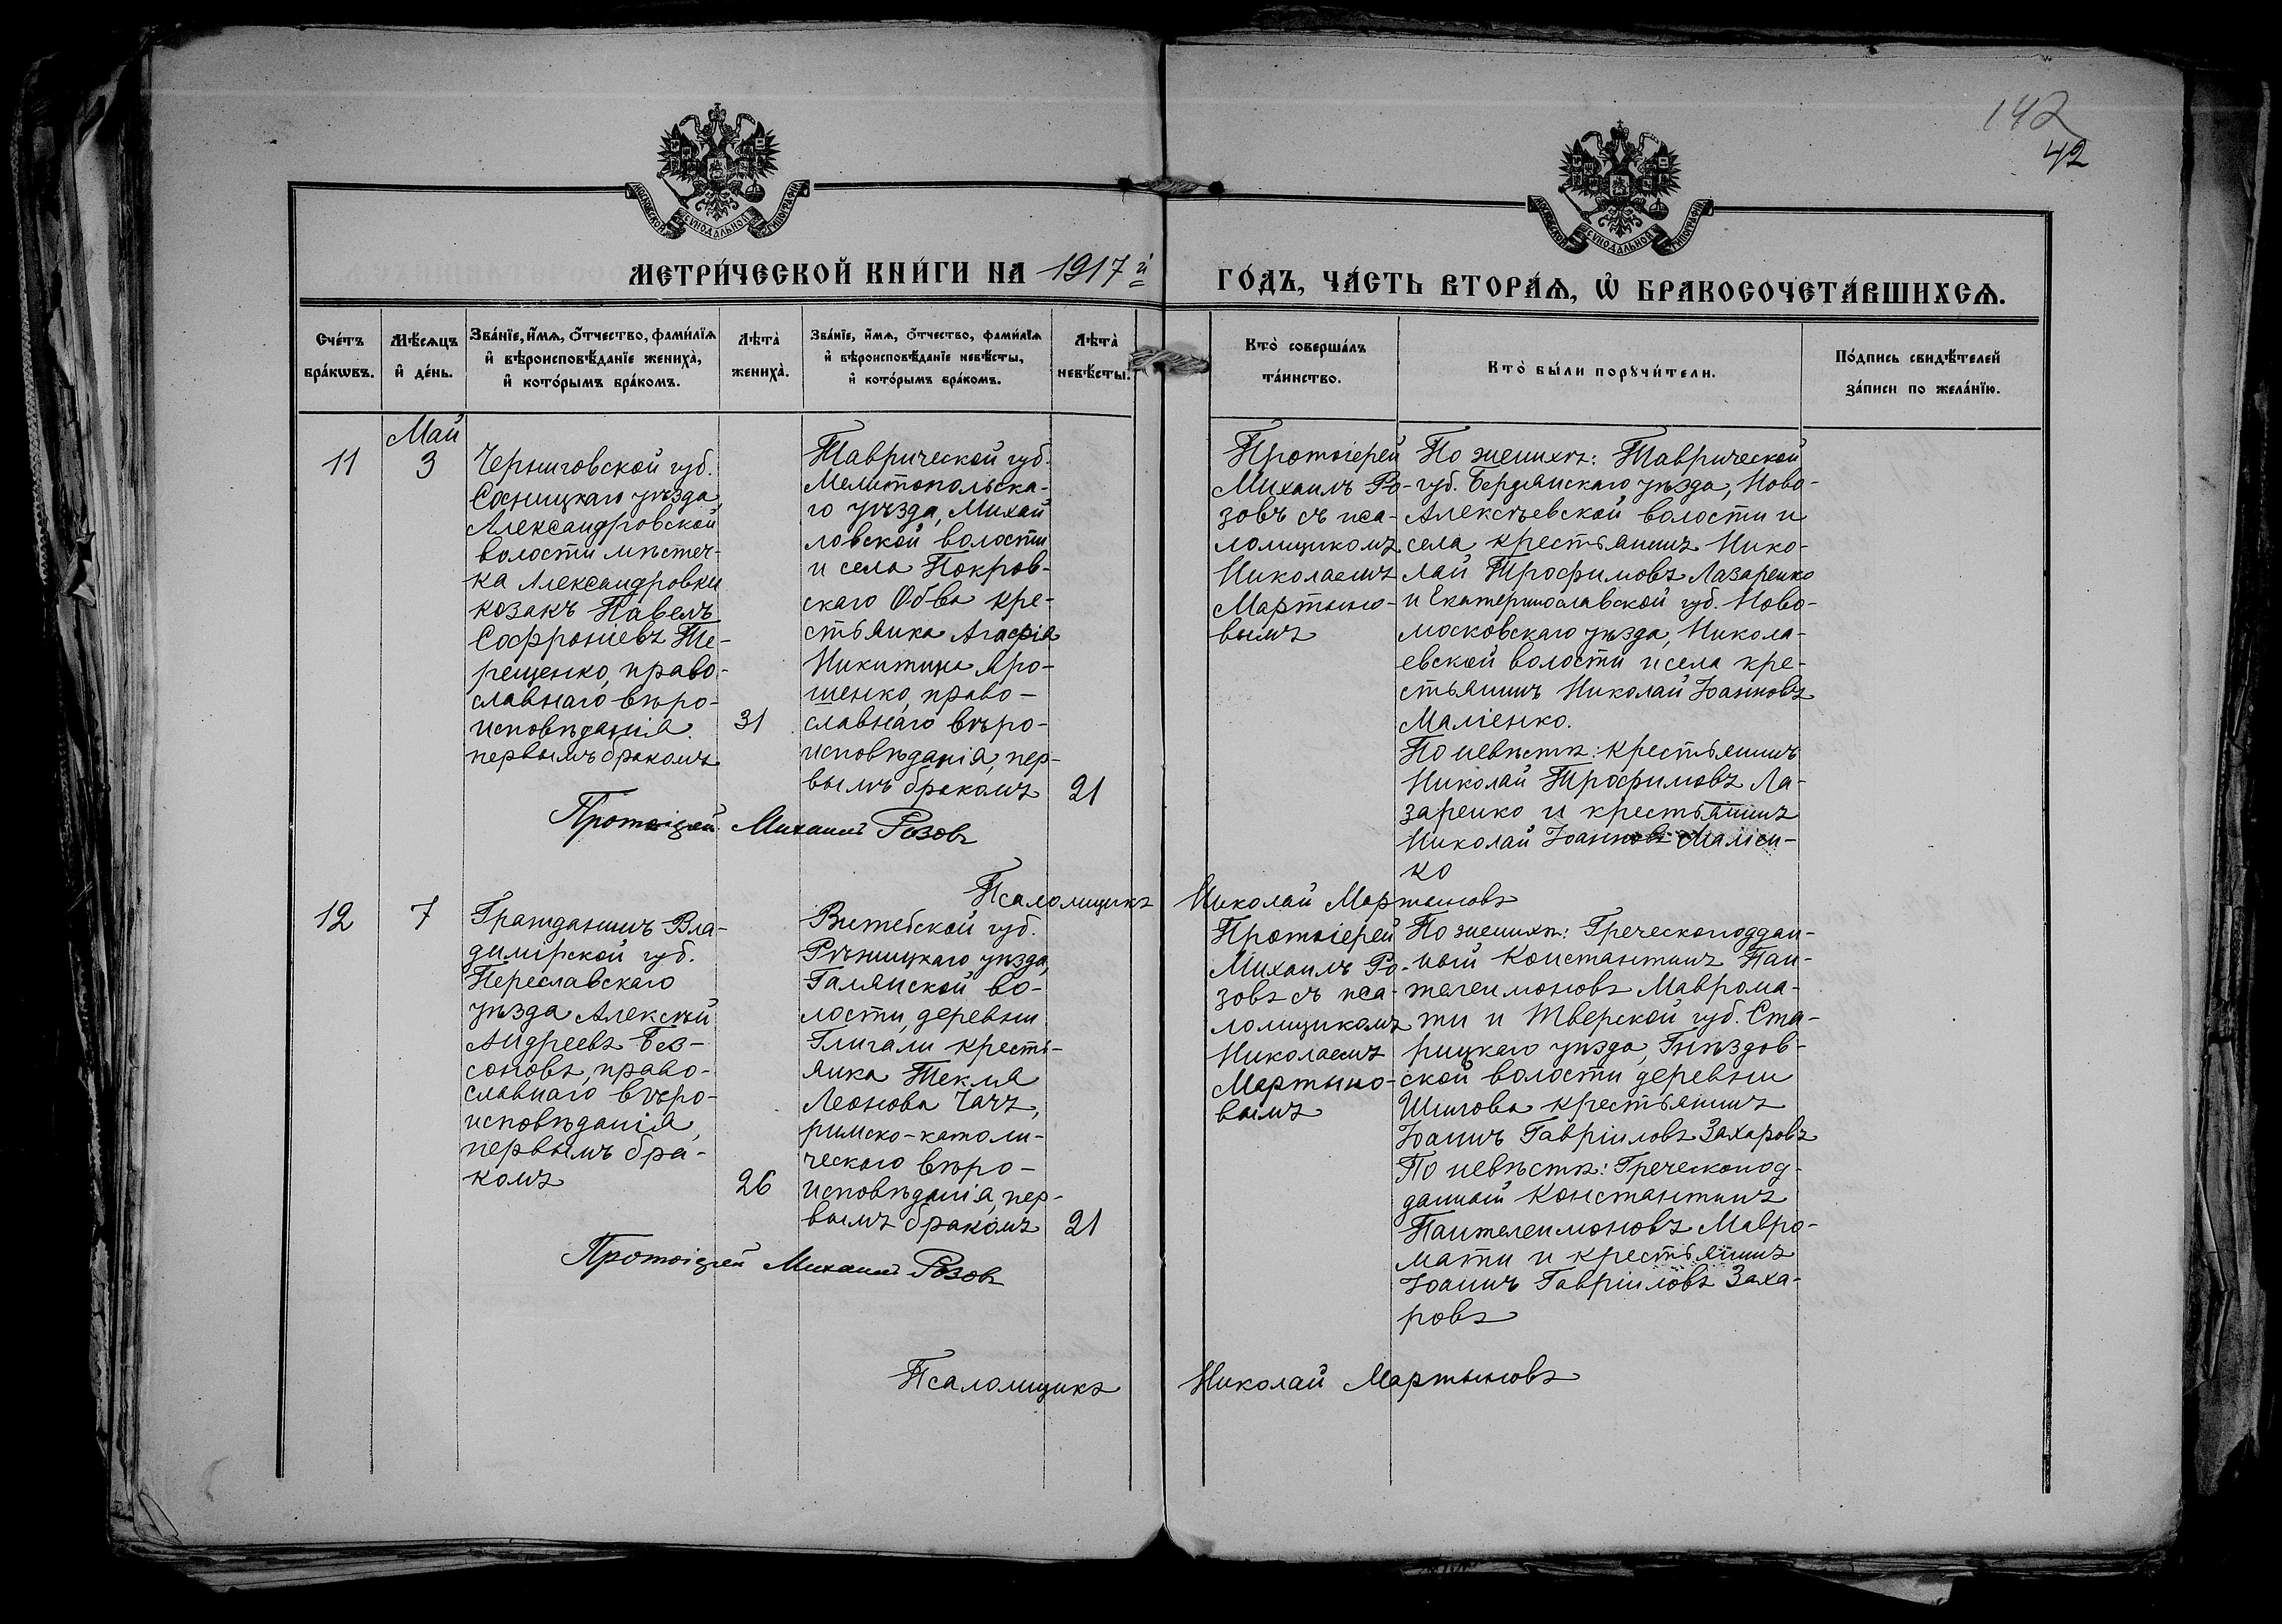 142
42
МОСКОВСКОЙ СѴНОДАЛЬНОЙ ТИПОГРАФІИ
МОСКОВСКОЙ СѴНОДАЛЬНОЙ ТИПОГРАФІИ
МЕТРИ́ЧЕСКОЙ КНИ́ГИ НА 1917 й
ГО́ДЪ, ЧА́СТЬ ВТОРА́Ѧ, Ѡ҆ БРАКОСОЧЕТА́ВШИХСѦ.
Сче́тъ
бра́кѡвъ.
Мѣ́сѧцъ
и҆ де́нь.
Зва́нїе, и҆́мѧ, ѻ҆́тчество, фами́лїѧ
и҆ вѣроисповѣ́данїе жениха̀,
и҆ кото́рымъ бра́комъ.
Лѣ́та̀
жениха̀.
Зва́нїе, и҆́мѧ, ѻ҆́тчество, фами́лїѧ
и҆ вѣроисповѣ́данїе невѣ́сты,
и҆ кото́рымъ бра́комъ.
Лѣ́та̀
невѣ́сты.
Кто̀ соверша́лъ
та́инство.
Кто̀ бы́ли порꙋчи́тели.
По́дпись свидѣ́телей
за́писи по жела́нїю.
11
Май
3
Черниговской губ.
Сосницкаго уѣзда,
Александровской
волости мѣстеч-
ка Александровки
козакъ Павелъ
Софроніевъ Те-
рещенко, право-
славнаго вѣро-
исповѣданія.
первымъ бракомъ
31
Таврической губ.
Мелитопольска-
го уѣзда, Михай
ловской волости
и села Покров-
скаго Об-ва кре-
стьянка Агафія
Никитина Яро-
шенко, право-
славнаго вѣро-
исповѣданія, пер-
вымъ бракомъ
21
Протоіерей
Михаилъ Ро-
зовъ съ пса-
ломщикомъ
Николаемъ
Мартыно-
вымъ
По женихѣ: Таврической
губ. Бердянскаго уѣзда, Ново-
Алексѣевской волости и
села крестьянинъ Нико-
лай Трофимовъ Лазаренко
и Екатеринославской губ. Ново-
московскаго уѣзда, Никола-
евской волости и села кре-
стьянинъ Николай Іоанновъ
Маліенко.
По невѣстѣ: крестьянинъ
Николай Трофимовъ Ла-
заренко и крестьянинъ
Николай Іоанновъ Маліен-
ко
Протоіерей Михаилъ Розовъ
Псаломщикъ Николай Мартыновъ
12
7
Гражданинъ Вла-
димірской губ.
Переславскаго
уѣзда Алексѣй
Андреевъ Без-
соновъ, право-
славнаго вѣро-
исповѣданія,
первымъ бра-
комъ
26
Витебской губ.
Рѣжицкаго уѣзда,
Галянской во-
лости, деревни
Глигали кресть-
янка Текля
Леонова Чачъ,
римско-католи-
ческаго вѣро-
исповѣданія, пер-
вымъ бракомъ
21
Протоіерей
Михаилъ Ро-
зовъ съ пса-
ломщикомъ
Николаемъ
Мартыно-
вымъ
По женихѣ: Греческоподдан-
ный Константинъ Пан-
телеимоновъ Маврома-
ти и Тверской губ. Ста-
рицкаго уѣзда, Гнѣздов-
ской волости деревни
Шилова крестьянинъ
Іоаннъ Гавріиловъ Захаровъ
По невѣстѣ: Греческопод-
данный Константинъ
Пантелеимоновъ Мавро-
мати и крестьянинъ
Іоаннъ Гавріиловъ Заха-
ровъ
Протоіерей Михаилъ Розовъ
Псаломщикъ Николай Мартыновъ